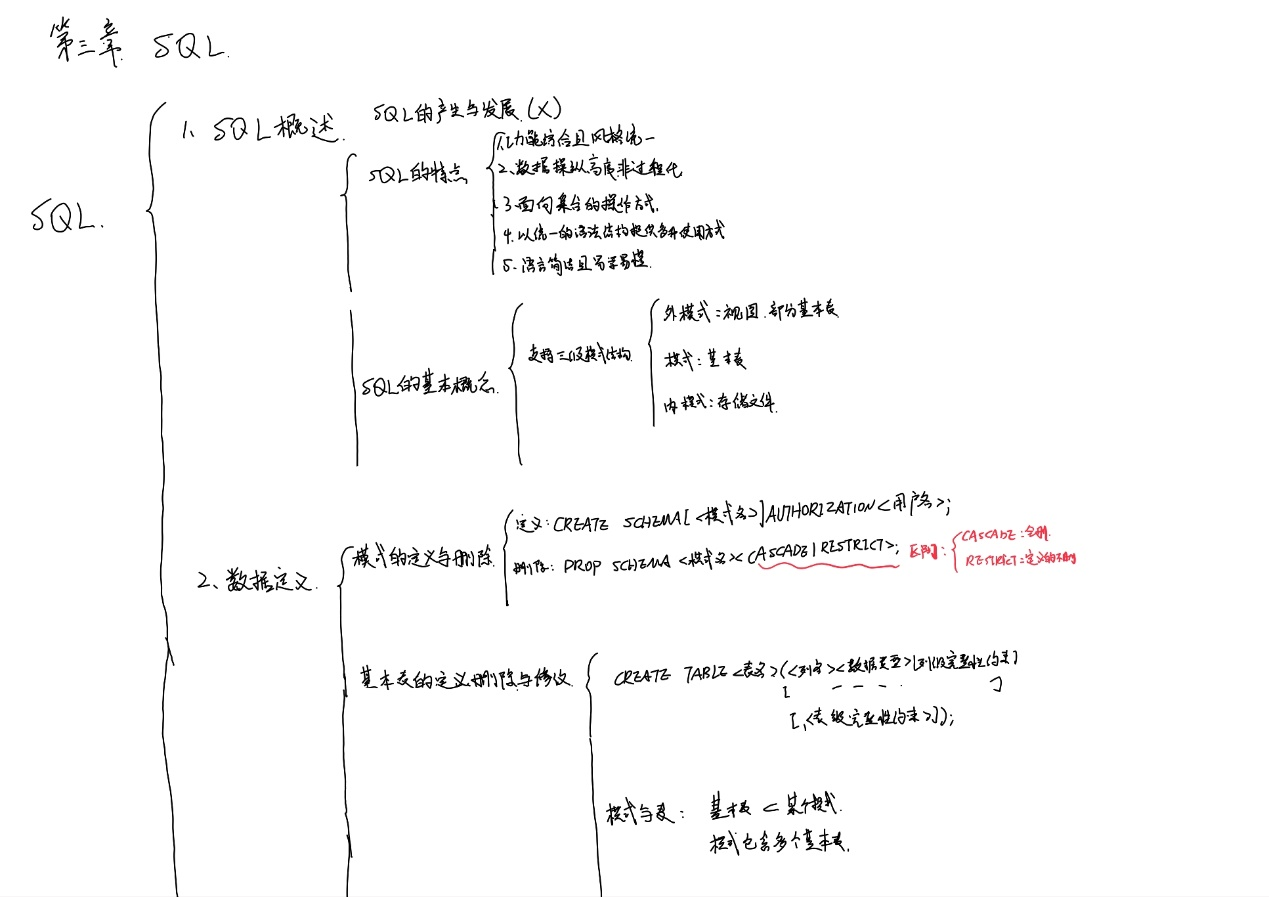 第三章 SQL.
SQL.
1、SQL概述.
SQL的产生与发展.(X)
SQL的特点
1.功能综合且风格统一
2、数据操纵高度非过程化
3.面向集合的操作方式.
4.以统一的语法结构提供多种使用方式
5.语言简洁且易学易懂.
SQL的基本概念.
支持三级模式结构.
外模式:视图.部分基本表
模式:基本表
内模式:存储文件.
2、数据定义.
模式的定义与删除.
定义:CREATE SCHEMA[<模式名>]AUTHORIZATION<用户名>;
删除:DROP SCHEMA <模式名>< CASCADE|RESTRICT>;
区别:
CASCADE:全删.
RESTRICT:定义的不删
基本表的定义删除与修改.
CREATE TABLE <表名>(<列名><数据类型>[列级完整性约束]
[ - - - - . ]
[,<表级完整性约束>]);
模式与表: 基本表 ⊂ 某个模式.
模式包含多个基本表.